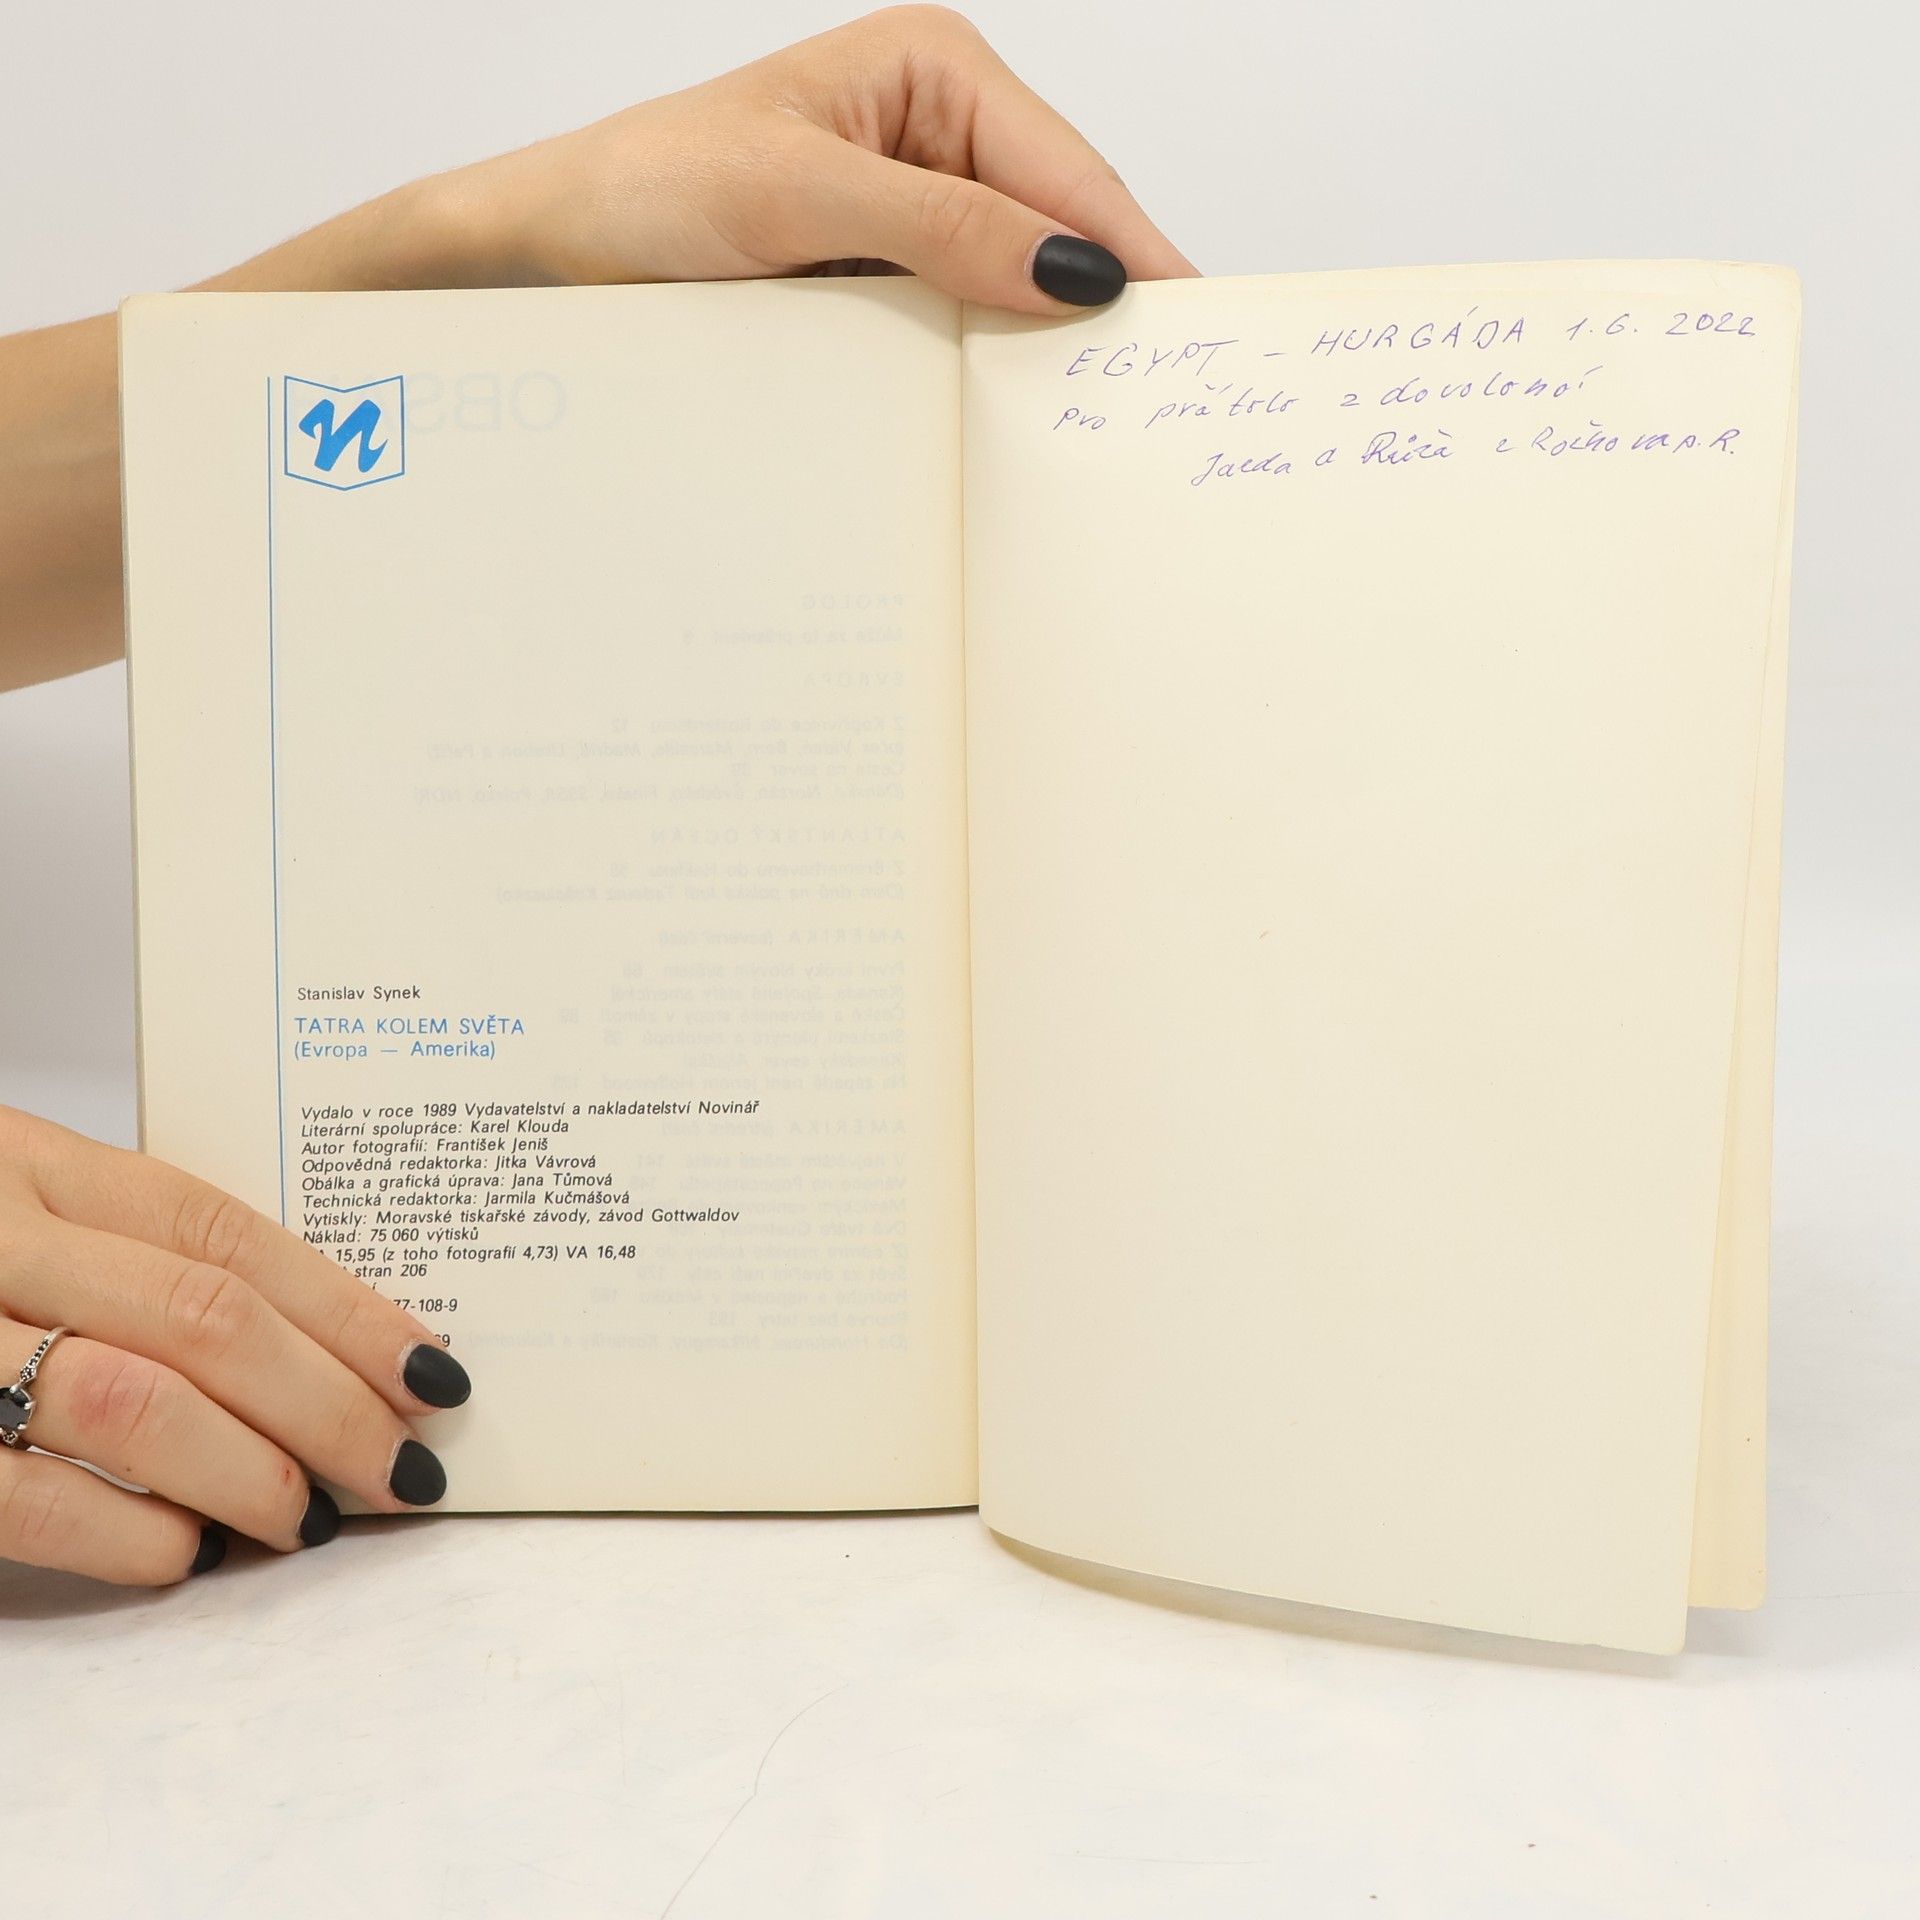 n
Stanislav Synek
TATRA KOLEM SVĚTA
(Evropa — Amerika)
Vydalo v roce 1989 Vydavatelství a nakladatelství Novinář
Literární spolupráce: Karel Klouda
Autor fotografií: František Jeniš
Odpovědná redaktorka: Jitka Vávrová
Obálka a grafická úprava: Jana Tůmová
Technická redaktorka: Jarmila Kučmášová
Vytiskly: Moravské tiskařské závody, závod Gottwaldov
Náklad: 75 060 výtisků
15,95 (z toho fotografií 4,73) VA 16,48
stran 206
77-108-9
69
EGYPT – HURGÁDA 1.6. 2022
Pro přátele z dovolené
Jarda a